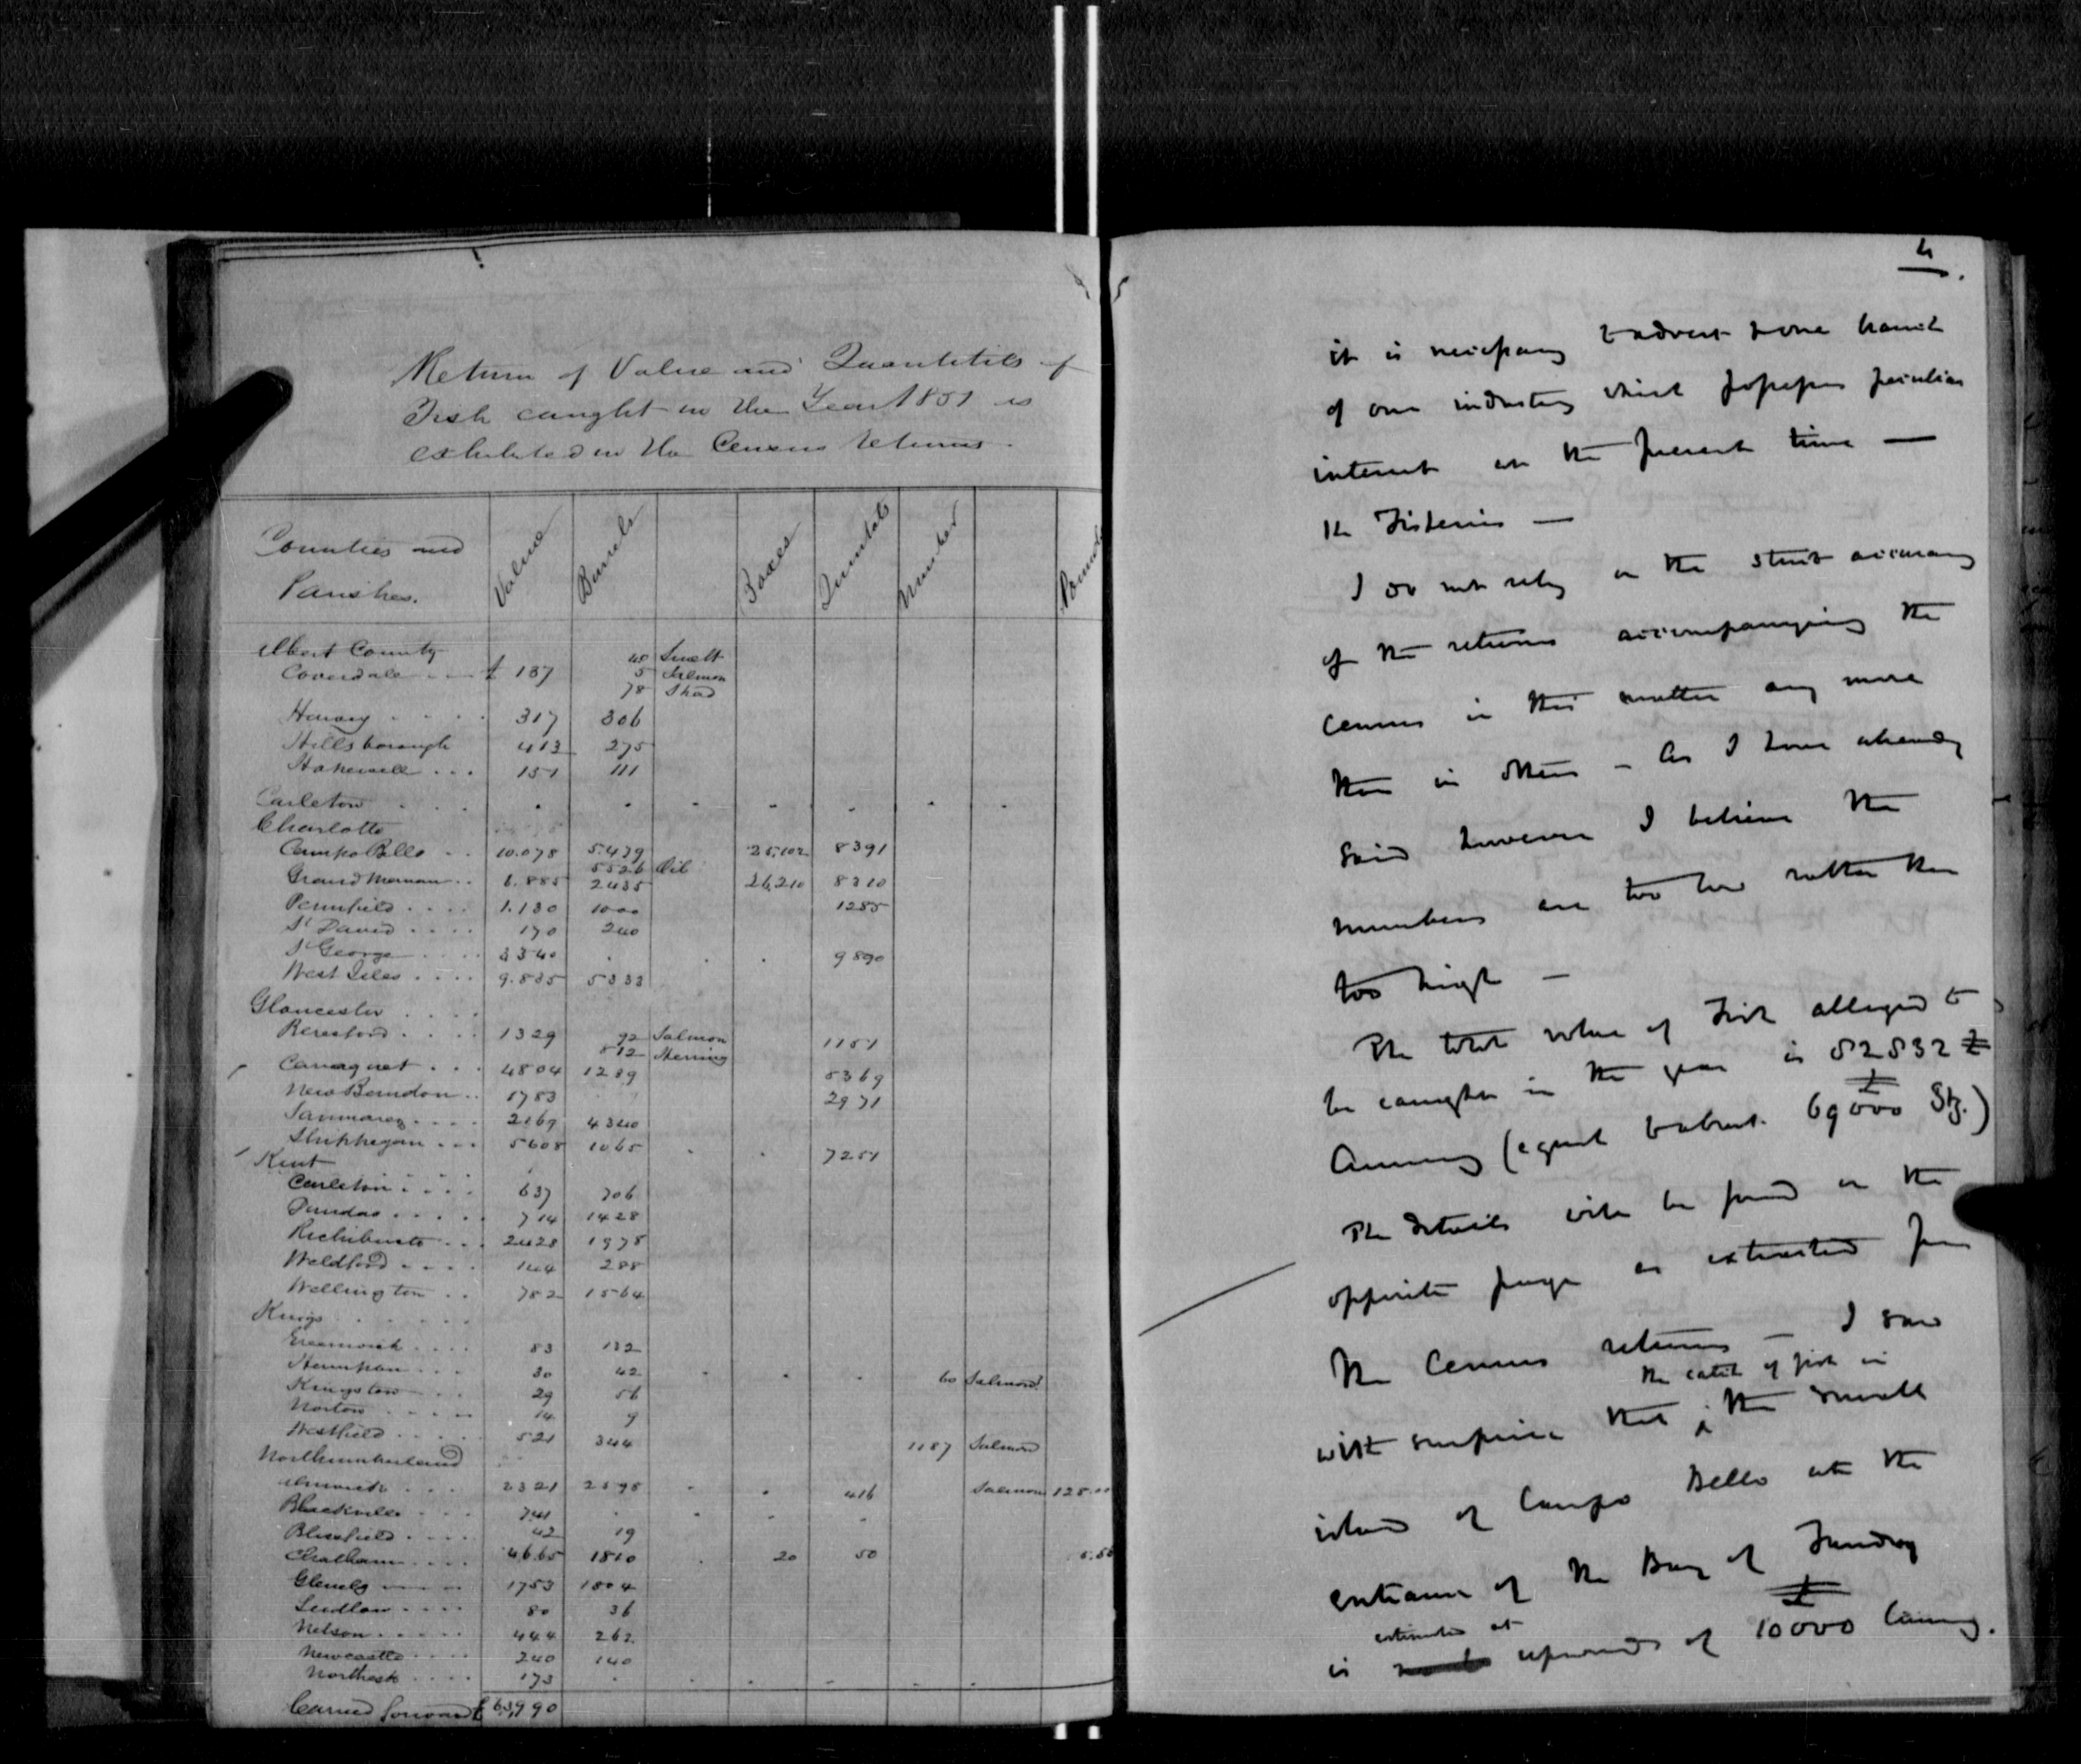 Return of Value and Quantities of
Fish caught in the Year 1851 as
exhibited in the Census returns.
Counties and Parishes. Value Barrels Boxes Quintals Number Pounds
Albert County
40 Smelt
Coverdale £ 137 5 Salmon
78 Shad
Harvey 317 306
Hillsborough 413 275
Hopewell 151 111
Carleton
Charlotte
Campo Bello 10.078 5439 25,102 8391
5526 Oil
Grand Manan 6.885 2435 26,210 8310
Pennfield 1.130 1000 1285
St David 170 240
St George 3340 9890
West Isles 9.835 5333
Gloucester
Beresford 1329 92 Salmon 1151
812 Herring
Caraquet 4804 1289 5369
New Bandon 1783 2971
Saumarez 2169 4340
Shippegan 5608 1065 7251
Kent
Carleton 637 706
Dundas 714 1428
Richibucto 2428 1978
Weldford 144 288
Wellington 782 1564
Kings
Greenwich 83 132
Hampton 30 42 60 Salmon
Kingston 29 56
Norton 14 9
Westfield 521 344 1187 Salmon
Northumberland
Alnwick 2321 2598 416 Salmon
Blackville 741
Blissfield 42 19
Chatham 4665 1810 20 50
Glenelg 1753 1804
Ludlow 80 36
Nelson 444 262
Newcastle 240 140
Northesk 173
Carried forward £ 63,990
4.
it is necessary to advert to one branch
of our industry which possesses peculiar
interest at the present time —
the Fisheries —
I do not rely on the strict accuracy
of the returns accompanying the
Census in this matter any more
than in others – As I have already
said however I believe the
numbers are too low rather than
too high —
The total value of Fish alleged to
be caught in the year is 82832 £
Currency (equal to about £69000 Stg.)
The details will be found on the
opposite page as extracted from
the Census returns – I saw
with surprise that the catch of fish in the small
island of Campo Bello at the
entrance of the Bay of Fundy
is estimated at upwards of £10000 Currency.